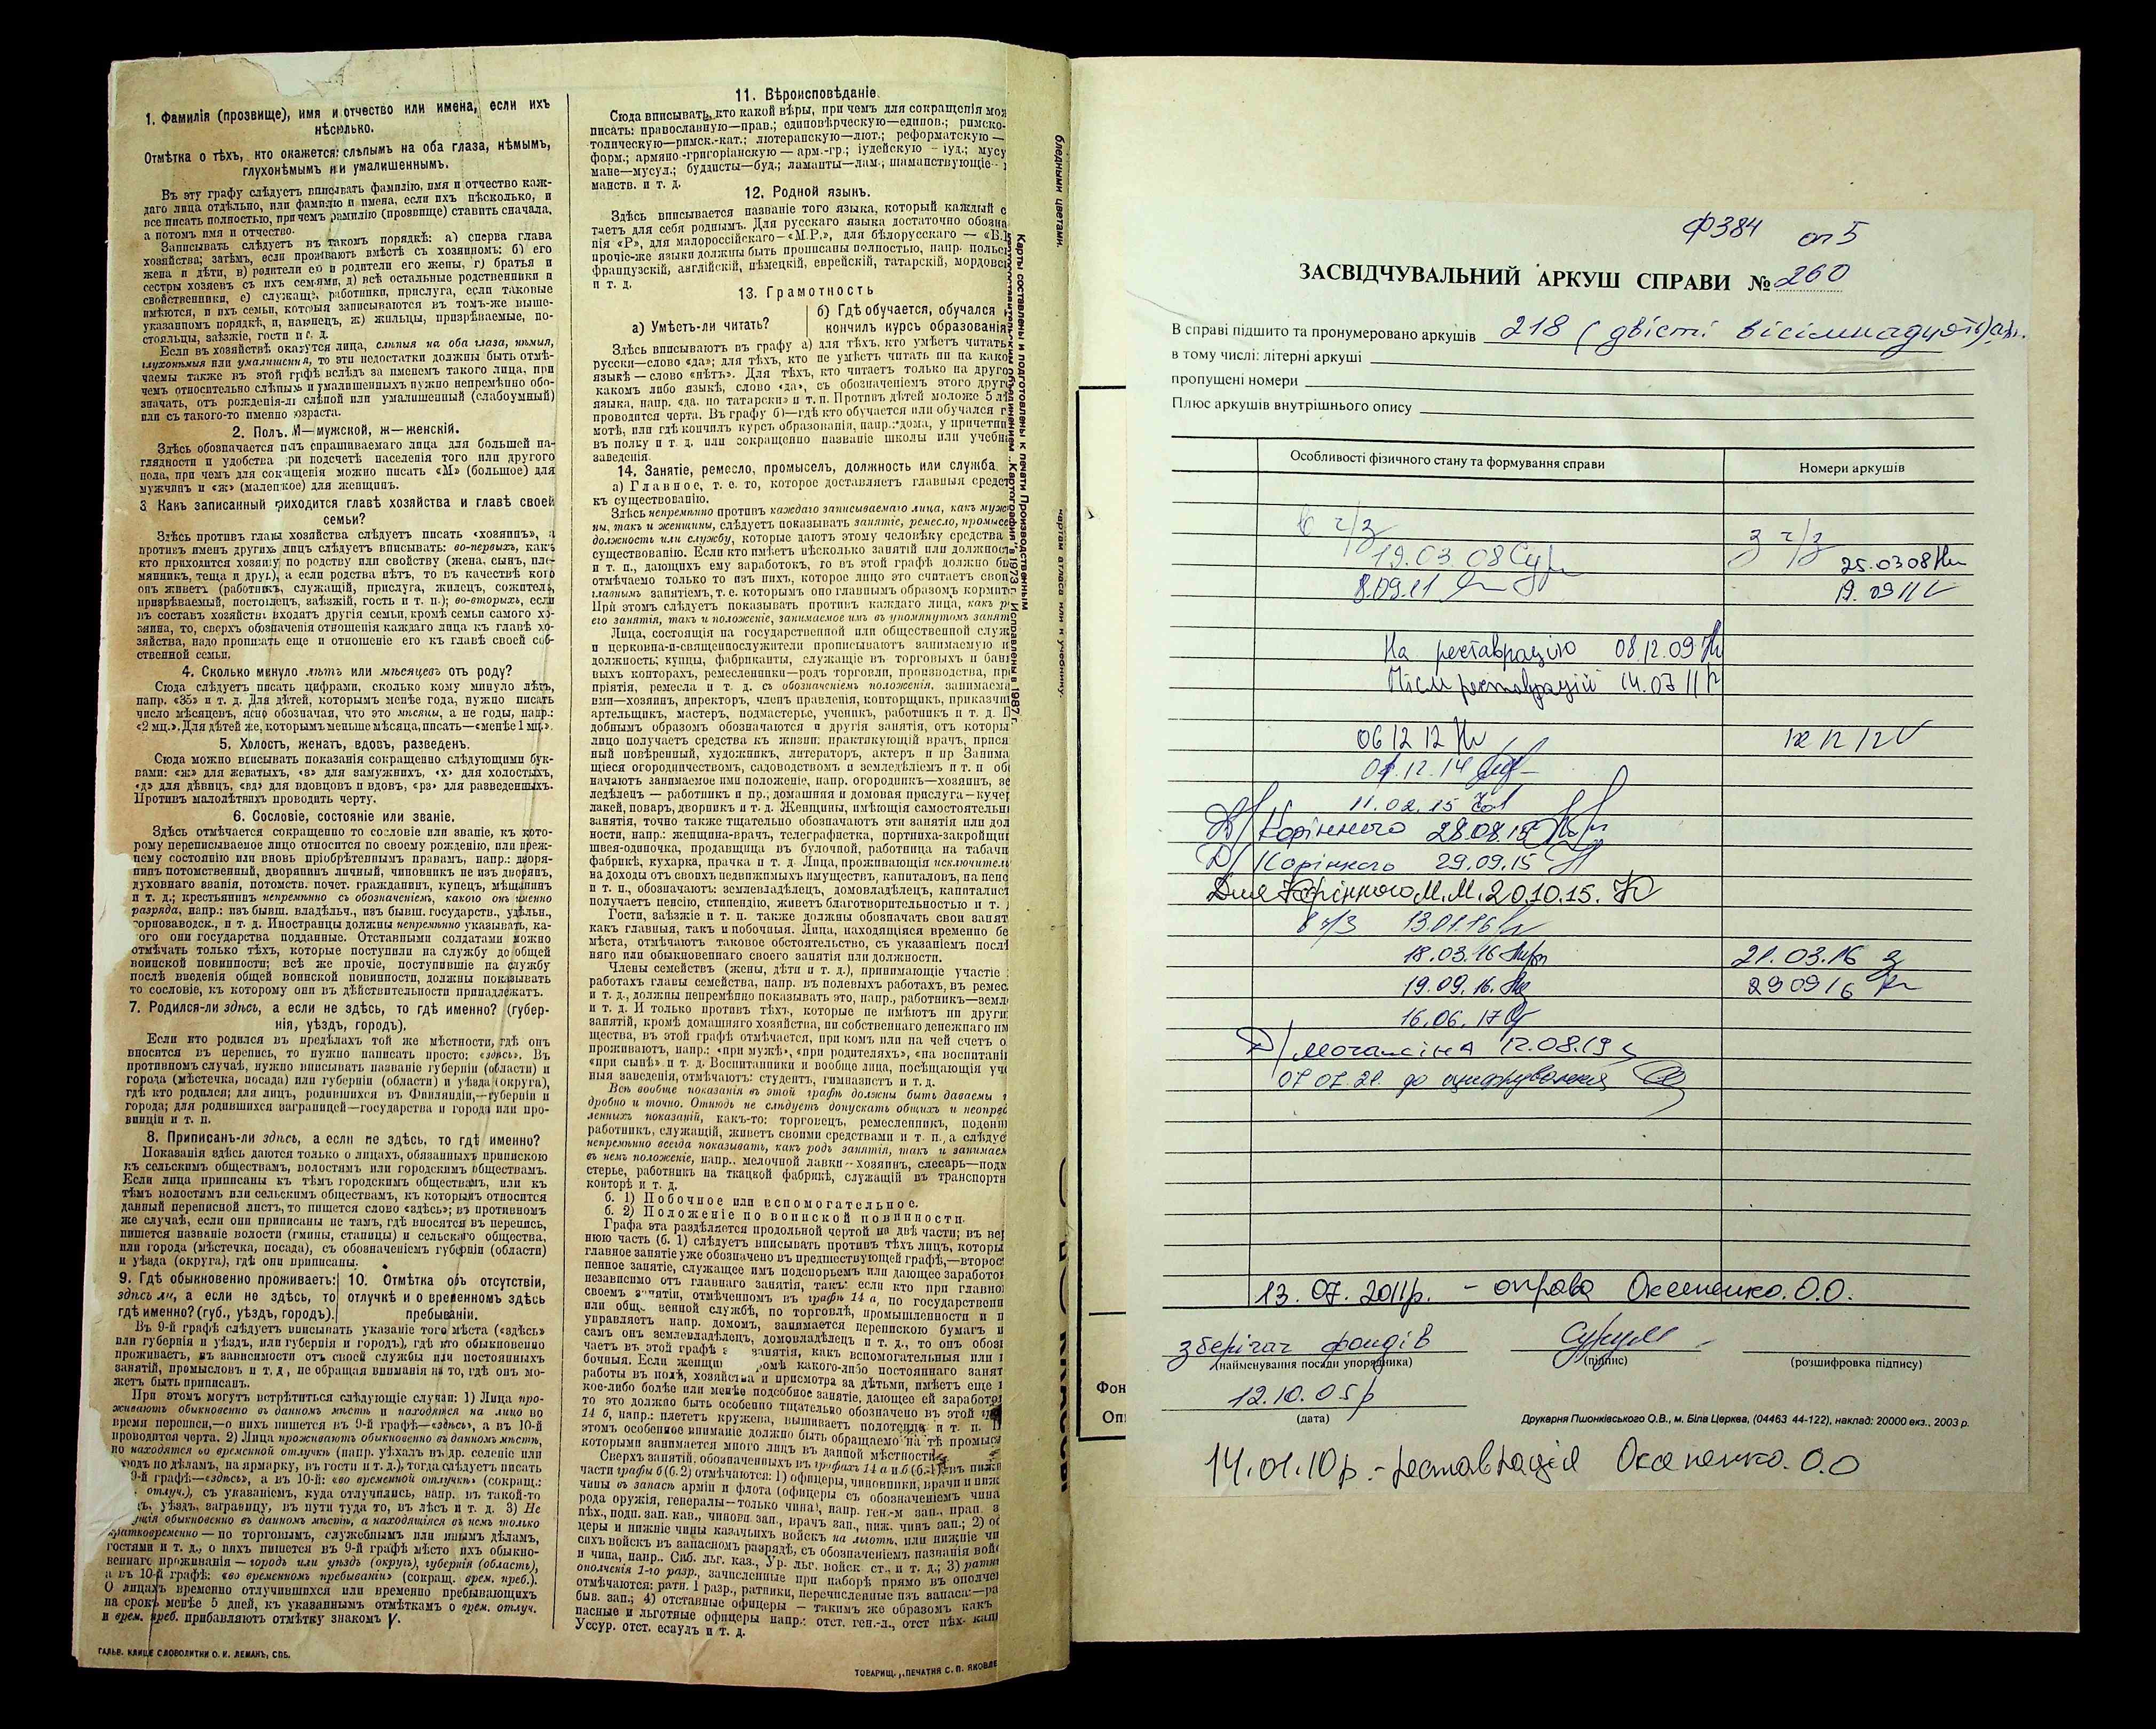 1. Фамилія (прозвище), имя и отчество или имена, если ихъ
нѣсколько.
Отмѣтка о тѣхъ, кто окажется: слѣпымъ на оба глаза, нѣмымъ,
глухонѣмымъ или умалишеннымъ.
Въ эту графу слѣдуетъ вписывать фамилію, имя и отчество каж-
даго лица отдѣльно, или фамилію и имена, если ихъ нѣсколько, и
все писать полностью, при чемъ фамилію (прозвище) ставить сначала,
а потомъ имя и отчество.
Записывать слѣдуетъ въ такомъ порядкѣ: а) сперва глава
хозяйства; затѣмъ, если проживаютъ вмѣстѣ съ хозяиномъ: б) его
жена и дѣти, в) родители его и родители его жены, г) братья и
сестры хозяевъ съ ихъ семьями, д) всѣ остальные родственники и
свойственники, е) служащіе, работники, прислуга, если таковые
имѣются, и ихъ семьи, которыя записываются въ томъ-же выше-
указанномъ порядкѣ, и, наконецъ, ж) жильцы, призрѣваемые, по-
стояльцы, заѣзжіе, гости и т. д.
Если въ хозяйствѣ окажутся лица, слѣпыя на оба глаза, нѣмыя,
глухонѣмыя или умалишенныя, то эти недостатки должны быть отмѣ-
чаемы также въ этой графѣ вслѣдъ за именемъ такого лица, при
чемъ относительно слѣпыхъ и умалишенныхъ нужно непремѣнно обо-
значать, отъ рожденія-ли слѣпой или умалишенный (слабоумный)
или съ такого-то именно возраста.
2. Полъ. М—мужской, ж—женскій.
Здѣсь обозначается полъ спрашиваемаго лица для большей на-
глядности и удобства при подсчетѣ населенія того или другого
пола, при чемъ для сокращенія можно писать «М» (большое) для
мужчинъ и «ж» (маленькое) для женщинъ.
3 Какъ записанный приходится главѣ хозяйства и главѣ своей
семьи?
Здѣсь противъ главы хозяйства слѣдуетъ писать «хозяинъ», а
противъ именъ другихъ лицъ слѣдуетъ вписывать: во-первыхъ, какъ
кто приходится хозяину по родству или свойству (жена, сынъ, пле-
мянникъ, теща и друг.), а если родства нѣтъ, то въ качествѣ кого
онъ живетъ (работникъ, служащій, прислуга, жилецъ, сожитель,
призрѣваемый, постоялецъ, заѣзжій, гость и т. п.); во-вторыхъ, если
въ составъ хозяйства входятъ другія семьи, кромѣ семьи самого хо-
зяина, то, сверхъ обозначенія отношенія каждаго лица къ главѣ хо-
зяйства, надо прописать еще и отношеніе его къ главѣ своей соб-
ственной семьи.
4. Сколько минуло лѣтъ или мѣсяцевъ отъ роду?
Сюда слѣдуетъ писать цифрами, сколько кому минуло лѣтъ,
напр. «35» и т. д. Для дѣтей, которымъ менѣе года, нужно писать
число мѣсяцевъ, ясно обозначая, что это мѣсяцы, а не годы, напр.:
«2 мц.». Для дѣтей же, которымъ меньше мѣсяца, писать—«менѣе 1 мц.».
5. Холостъ, женатъ, вдовъ, разведенъ.
Сюда можно вписывать показанія сокращенно слѣдующими бук-
вами: «ж» для женатыхъ, «з» для замужнихъ, «х» для холостыхъ,
«д» для дѣвицъ, «вд» для вдовцовъ и вдовъ, «рз» для разведенныхъ.
Противъ малолѣтнихъ проводить черту.
6. Сословіе, состояніе или званіе.
Здѣсь отмѣчается сокращенно то сословіе или званіе, къ кото-
рому переписываемое лицо относится по своему рожденію, или преж-
нему состоянію или вновь пріобрѣтеннымъ правамъ, напр.: дворя-
нинъ потомственный, дворянинъ личный, чиновникъ не изъ дворянъ,
духовнаго званія, потомств. почет. гражданинъ, купецъ, мѣщанинъ
и т. д.; крестьянинъ непремѣнно съ обозначеніемъ, какого онъ именно
разряда, напр.: изъ бывш. владѣльч., изъ бывш. государств., удѣльн.,
горнозаводск., и т. д. Иностранцы должны непремѣнно указывать, ка-
ого они государства подданные. Отставными солдатами можно
отмѣчать только тѣхъ, которые поступили на службу до общей
воинской повинности; всѣ же прочіе, поступившіе на службу
послѣ введенія общей воинской повинности, должны показывать
то сословіе, къ которому они въ дѣйствительности принадлежатъ.
7. Родился-ли здѣсь, а если не здѣсь, то гдѣ именно? (губер-
нія, уѣздъ, городъ).
Если кто родился въ предѣлахъ той же мѣстности, гдѣ онъ
вносится въ перепись, то нужно написать просто: «здѣсь». Въ
противномъ случаѣ, нужно вписывать названіе губерніи (области) и
города (мѣстечка, посада) или губерніи (области) и уѣзда (округа),
гдѣ кто родился; для лицъ, родившихся въ Финляндіи,—губерніи и
города; для родившихся заграницей—государства и города или про-
винціи и т. п.
8. Приписанъ-ли здѣсь, а если не здѣсь, то гдѣ именно?
Показанія здѣсь даются только о лицахъ, обязанныхъ припискою
къ сельскимъ обществамъ, волостямъ или городскимъ обществамъ.
Если лица приписаны къ тѣмъ городскимъ обществамъ, или къ
тѣмъ волостямъ или сельскимъ обществамъ, къ которымъ относится
данный переписной листъ, то пишется слово «здѣсь»; въ противномъ
же случаѣ, если они приписаны не тамъ, гдѣ вносятся въ перепись,
пишется названіе волости (гмины, станицы) и сельскаго общества,
или города (мѣстечка, посада), съ обозначеніемъ губерніи (области)
и уѣзда (округа), гдѣ они приписаны.
9. Гдѣ обыкновенно проживаетъ:
здѣсь ли, а если не здѣсь, то
гдѣ именно? (губ., уѣздъ, городъ).
10. Отмѣтка объ отсутствіи,
отлучкѣ и о временномъ здѣсь
пребываніи.
Въ 9-й графѣ слѣдуетъ вписывать указаніе того мѣста («здѣсь»
или губернія и уѣздъ, или губернія и городъ), гдѣ кто обыкновенно
проживаетъ, въ зависимости отъ своей службы или постоянныхъ
занятій, промысловъ и т. д., не обращая вниманія на то, гдѣ онъ мо-
жетъ быть приписанъ.
При этомъ могутъ встрѣтиться слѣдующіе случаи: 1) Лица про-
живаютъ обыкновенно въ данномъ мѣстѣ и находятся на лицо во
время переписи,—о нихъ пишется въ 9-й графѣ—«здѣсь», а въ 10-й
проводится черта. 2) Лица проживаютъ обыкновенно въ данномъ мѣстѣ,
но находятся во временной отлучкѣ (напр. уѣхалъ въ др. селеніе или
родъ по дѣламъ, на ярмарку, въ гости и т. д.), тогда слѣдуетъ писать
9-й графѣ—«здѣсь», а въ 10-й: «во временной отлучкѣ» (сокращ.:
отлуч.), съ указаніемъ, куда отлучились, напр. въ такой-то
уѣздъ, заграницу, въ пути туда то, въ лѣсъ и т. д. 3) Не
обыкновенно въ данномъ мѣстѣ, а находящіяся въ немъ только
кратковременно — по торговымъ, служебнымъ или инымъ дѣламъ,
гостями и т. д., о нихъ пишется въ 9-й графѣ мѣсто ихъ обыкно-
веннаго проживанія — городъ или уѣздъ (округъ), губернія (область),
а въ 10-й графѣ: «во временномъ пребываніи» (сокращ. врем. преб.).
О лицахъ временно отлучившихся или временно пребывающихъ
на срокъ менѣе 5 дней, къ указаннымъ отмѣткамъ о врем. отлуч.
и врем. преб. прибавляютъ отмѣтку знакомъ V.
ГАЛЬВ. КЛИШЕ СЛОВОЛИТНИ О. И. ЛЕМАНЪ, СПБ.
11. Вѣроисповѣданіе.
Сюда вписывать, кто какой вѣры, при чемъ для сокращенія мож
писать: православную—прав.; единовѣрческую—единов.; римско-
толическую—римск.-кат.; лютеранскую—лют.; реформатскую —
форм.; армяно-григоріанскую — арм.-гр.; іудейскую – іуд.; мусу
мане—мусул.; буддисты—буд.; ламаиты—лам.; шаманствующіе
манств. и т. д.
12. Родной языкъ.
Здѣсь вписывается названіе того языка, который каждый с
таетъ для себя роднымъ. Для русскаго языка достаточно обозна
нія «Р», для малороссійскаго—«М.Р.», для бѣлорусскаго — «Б.Р
прочіе-же языки должны быть прописаны полностью, напр. польск
французскій, англійскій, нѣмецкій, еврейскій, татарскій, мордовск
и т. д.
13. Грамотность
а) Умѣетъ-ли читать?
б) Гдѣ обучается, обучался
кончилъ курсъ образованія
Здѣсь вписываютъ въ графу а) для тѣхъ, кто умѣетъ читать
русски—слово «да»; для тѣхъ, кто не умѣетъ читать ни на како
языкѣ — слово «нѣтъ». Для тѣхъ, кто читаетъ только на друго
какомъ либо языкѣ, слово «да», съ обозначеніемъ этого друг
языка, напр. «да, по татарски» и т. п. Противъ дѣтей моложе 5 лѣ
проводится черта. Въ графу б)—гдѣ кто обучается или обучался г
мотѣ, или гдѣ кончилъ курсъ образованія, напр.: дома, у причетни
въ полку и т. д. или сокращенно названіе школы или учебн
заведенія.
14. Занятіе, ремесло, промыселъ, должность или служба.
а) Главное, т. е. то, которое доставляетъ главныя средст
къ существованію.
Здѣсь непремѣнно противъ каждаго записываемаго лица, какъ муж
ны, такъ и женщины, слѣдуетъ показывать занятіе, ремесло, промысе
должность или службу, которые даютъ этому человѣку средства
существованію. Если кто имѣетъ нѣсколько занятій или должност
и т. п., дающихъ ему заработокъ, то въ этой графѣ должно бы
отмѣчаемо только то изъ нихъ, которое лицо это считаетъ свои
главнымъ занятіемъ, т. е. которымъ оно главнымъ образомъ кормитс
При этомъ слѣдуетъ показывать противъ каждаго лица, какъ р
его занятія, такъ и положеніе, занимаемое имъ въ упомянутомъ занят
Лица, состоящія на государственной или общественной служ
и церковно-и-священнослужители прописываютъ занимаемую и
должность; купцы, фабриканты, служащіе въ торговыхъ и банк
выхъ конторахъ, ремесленники—родъ торговли, производства, пр
пріятія, ремесла и т. д. съ обозначеніемъ положенія, занимаема
ими—хозяинъ, директоръ, членъ правленія, конторщикъ, приказчи
артельщикъ, мастеръ, подмастерье, ученикъ, работникъ и т. д. П
добнымъ образомъ обозначаются и другія занятія, отъ которы
лицо получаетъ средства къ жизни: практикующій врачъ, прися
ный повѣренный, художникъ, литераторъ, актеръ и пр Занима
щіеся огородничествомъ, садоводствомъ и земледѣліемъ и т. п обо
начаютъ занимаемое ими положеніе, напр. огородникъ—хозяинъ, зе
ледѣлецъ — работникъ и пр.; домашняя и домовая прислуга—кучер
лакей, поваръ, дворникъ и т. д. Женщины, имѣющія самостоятельн
занятія, точно также тщательно обозначаютъ эти занятія или дол
ности, напр.: женщина-врачъ, телеграфистка, портниха-закройщиц
швея-одиночка, продавщица въ булочной, работница на табачн
фабрикѣ, кухарка, прачка и т. д. Лица, проживающія исключитель
на доходы отъ своихъ недвижимыхъ имуществъ, капиталовъ, на пенс
и т. п., обозначаютъ: землевладѣлецъ, домовладѣлецъ, капиталист
получаетъ пенсію, стипендію, живетъ благотворительностью и т.
Гости, заѣзжіе и т. п. также должны обозначать свои занят
какъ главныя, такъ и побочныя. Лица, находящіяся временно бе
мѣста, отмѣчаютъ таковое обстоятельство, съ указаніемъ послѣ
няго или обыкновеннаго своего занятія или должности.
Члены семействъ (жены, дѣти и т. д.), принимающіе участіе
работахъ главы семейства, напр. въ полевыхъ работахъ, въ ремес
и т. д., должны непремѣнно показывать это, напр., работникъ—земле
и т. д. И только противъ тѣхъ, которые не имѣютъ ни други
занятій, кромѣ домашняго хозяйства, ни собственнаго денежнаго им
щества, въ этой графѣ отмѣчается, при комъ или на чей счетъ о
проживаютъ, напр.: «при мужѣ», «при родителяхъ», «на воспитані
«при сынѣ» и т. д. Воспитанники и вообще лица, посѣщающія уче
ныя заведенія, отмѣчаютъ: студентъ, гимназистъ и т. д.
Всѣ вообще показанія въ этой графѣ должны быть даваемы
дробно и точно. Отнюдь не слѣдуетъ допускать общихъ и неопред
ленныхъ показаній, какъ-то: торговецъ, ремесленникъ, поденщ
работникъ, служащій, живетъ своими средствами и т. п., а слѣдуе
непремѣнно всегда показывать, какъ родъ занятія, такъ и занимаем
въ немъ положеніе, напр.. мелочной лавки--хозяинъ, слесарь—подм
стерье, работникъ на ткацкой фабрикѣ, служащій въ транспортн
конторѣ и т. д.
б. 1) Побочное или вспомогательное.
б. 2) Положеніе по воинской повинности.
Графа эта раздѣляется продольной чертой на двѣ части; въ вер
нюю часть (б. 1) слѣдуетъ вписывать противъ тѣхъ лицъ, которы
главное занятіе уже обозначено въ предшествующей графѣ,—второс
пенное занятіе, служащее имъ подспорьемъ или дающее заработок
независимо отъ главнаго занятія, такъ: если кто при главно
своемъ занятіи, отмѣченномъ въ графѣ 14 а, по государственн
или общ венной службѣ, по торговлѣ, промышленности и п
управляетъ напр. домомъ, занимается перепискою бумагъ и
самъ онъ землевладѣлецъ, домовладѣлецъ и т. д., то онъ обоз
чаетъ въ этой графѣ занятія, какъ вспомогательныя или
бочныя. Если женщин ромѣ какого-либо постояннаго занят
работы въ полѣ, хозяйства и присмотра за дѣтьми, имѣетъ еще
кое-либо болѣе или менѣе подсобное занятіе, дающее ей заработо
то это должно быть особенно тщательно обозначено въ этой
14 б, напр.: плететъ кружева, вышиваетъ полотенца и т. п.
этомъ особенное вниманіе должно быть обращаемо на тѣ промыс
которыми занимается много лицъ въ данной мѣстности.
Сверхъ занятій, обозначенныхъ въ графахъ 14 а и б (б.-1), въ нижн
части графы б (б.2) отмѣчаются: 1) офицеры, чиновники, врачи и ниж
чины въ запасѣ арміи и флота (офицеры съ обозначеніемъ чина
рода оружія, генералы—только чина), напр. ген.-м зап., прап. з
пѣх., подп. зап. кав., чиновн. зап., врачъ зап., ниж. чинъ зап.; 2) оф
церы и нижніе чины казачьихъ войскъ на льготѣ, или нижніе чи
сихъ войскъ въ запасномъ разрядѣ, съ обозначеніемъ названія войс
и чина, напр.. Снб. льг. каз., Ур. льг. войск. ст., и т. д.; 3) ратн
ополченія 1-го разр., зачисленные при наборѣ прямо въ ополче
отмѣчаются: ратн. 1 разр., ратники, перечисленные изъ запаса:—ра
быв. зап.; 4) отставные офицеры — такимъ же образомъ какъ
пасные и льготные офицеры напр.: отст. ген.-л., отст пѣх. кап
Уссур. отст. есаулъ и т. д.
ТОВАРИЩ. „ПЕЧАТНЯ С. П. ЯКОВЛЕ
Карты составлены и подготовлены к печати Производственным
картосоставительским объединением „Картография" в 1973 г. Исправлены в 1987 г.
бледными цветами.
картам атласа или к учебнику.
Фон
Оп
Ф384 оп 5
ЗАСВІДЧУВАЛЬНИЙ АРКУШ СПРАВИ № 260
В справі підшито та пронумеровано аркушів 218 (двісті вісімнадцять) арк.
в тому числі: літерні аркуші
пропущені номери
Плюс аркушів внутрішнього опису
Особливості фізичного стану та формування справи
Номери аркушів
в ч/з
з ч/з
19.03.08
25.03 08
8.09.11
19.09 11
На реставрацію 08.12.09
Після реставрацій 14.07 11
06 12 12
12 12 12
01.12.14
11.02.15
Д/Корінного 28.08.15
Д/Корінного 29.09.15
Для Корінного М.М. 20.10.15.
в ч/з 13.01.16
18.03.16
21.03.16
19.09.16
29 09 16
16.06.17
Д/ 12.08.19
07 07.21 до оцифрування
13.07.2011р. - оправа Оксененко. О.О.
зберігач фондів
(найменування посади упорядника)
(підпис)
(розшифровка підпису)
12.10.05р
(дата)
Друкарня Пшонківського О.В., м. Біла Церква, (04463 44-122), наклад: 20000 екз., 2003 р.
14.01.10р.-реставрація Оксененко. О.О